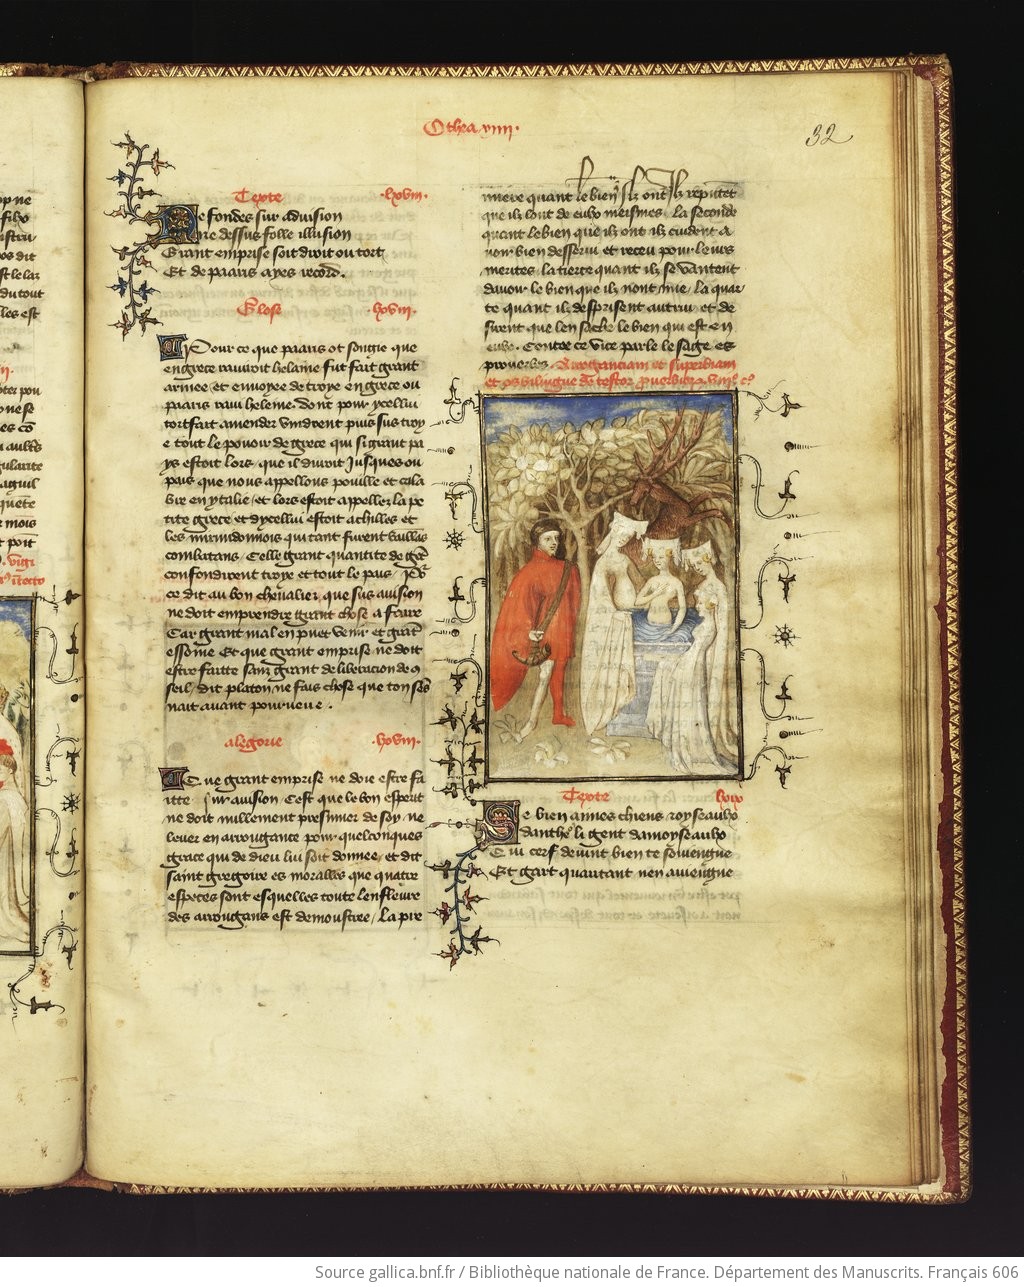 Othea xiiii.
32
Texte .lxviii.
Ne fondes sur advision
Ne dessus folle illusion
Grant emprise soit droit ou tort
Et de paaris ayes record.
Glose .lxviii.
Pour ce que paaris ot songie que
en grece raviroit helaine fut fait grant
armee et envoyee de troye en grece ou
paaris ravi heleine. donc pour ycellui
tort fait amender vindrent puis sus troy
e tout le pouoir de grece qui si grant pa
ys estoit lors que il duroit jusques ou
pais que nous appellons pouille et cala
bre en ytalie et lors estoit appellez la pe
tite grece et dycellui estoit achilles et
les mirmidonois qui tant furent vaillans
combatans. Celle grant quantite de gent
confondirent troye et tout le pais.
ce dit au bon chevalier que sus avision
ne doit emprendre grant chose a faire
Car grant mal en puet venir et grant
essoine Et que grant emprise ne doit
estre faitte sanz grant deliberacion de con
seil/ dit platon ne fais chose que ton sens
nait avant pourveue.
alegorie .lxviii.
Que grant emprise ne doie estre fa
itte pour avision. Cest que le bon esperit
ne doit nullement presumer de soy ne
lever en arrogance pour quelconques
grace que de dieu lui soit donnee et dit
saint gregoire es moralles que quatre
especes sont esquelles toute lenfleure
des arrogans est demoustree/ La pre
miere quant le bien quilz ont ilz reputent
que ilz lont de eulx meismes. la seconde
quant le bien que ilz ont ilz cuident a
voir bien desservi et receu pour leurs
merites. la tierce quant ilz se vantent
davoir le bien que ilz nont mie. la quar
te quant ilz desprisent autrui et de
sirent que len sache le bien qui est en
eulx. Contre ce vice parle le sage es
proverbes. Arroganciam et superbiam
et os bilingue detestor proverbiorum viii° c°
Texte lxix
Se bien aimes chiens et oyseaulx
danthe li gent damoyseaulx
Qui cerf devint bien te souviengne
Et gart quautant nen aviengne
Source gallica.bnf.fr / Bibliothèque nationale de France. Département des Manuscrits. Français 606